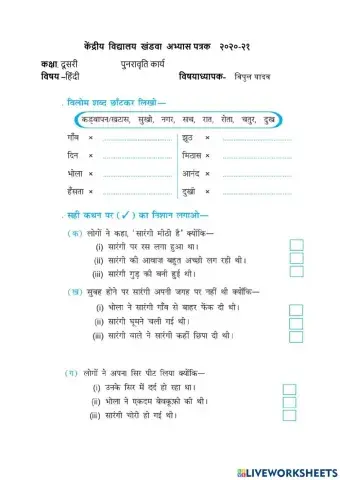 केंद्रीय विद्यालय खंडवा अभ्यास पत्रक २०२०-२१
कक्षा दूसरी पुनरावृति कार्य
विषय –हिंदी विषयाध्यापक- विपुल यादव
. विलोम शब्द छाँटकर लिखो—
कड़वापन/खटास, सुखी, नगर, सच, रात, रोता, चतुर, दुख
गाँव × ........................ झूठ × ........................
दिन × ........................ मिठास × ........................
भोला × ........................ आनंद × ........................
हँसता × ........................ दुखी × ........................
. सही कथन पर (✓) का निशान लगाओ—
(क) लोगों ने कहा, 'सारंगी मीठी है' क्योंकि—
(i) सारंगी पर रस लगा हुआ था।
(ii) सारंगी की आवाज बहुत अच्छी लग रही थी।
(iii) सारंगी गुड़ की बनी हुई थी।
(ख) सुबह होने पर सारंगी अपनी जगह पर नहीं थी क्योंकि—
(i) भोला ने सारंगी गाँव से बाहर फेंक दी थी।
(ii) सारंगी घूमने चली गई थी।
(iii) सारंगी वाले ने सारंगी कहीं छिपा दी थी।
(ग) लोगों ने अपना सिर पीट लिया क्योंकि—
(i) उनके सिर में दर्द हो रहा था।
(ii) भोला ने एकदम बेवकूफ़ी की थी।
(iii) सारंगी चोरी हो गई थी।
LIVEWORKSHEETS